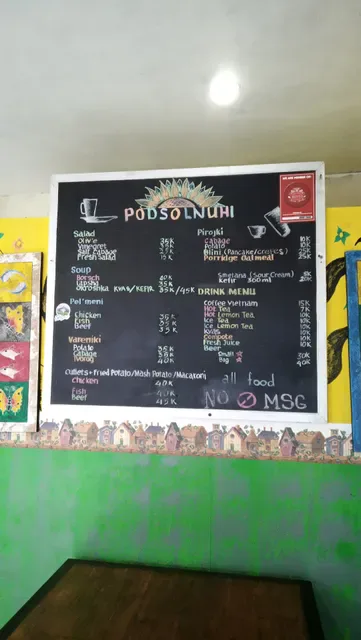 PODSOLNUHI
Salad
Olivie 35K
Vinegret 25K
Salt Cabage 25K
Fresh Salad 15K
Soup
Borsch 40K
Lapsha 35K
Okroshka KVAS/KEFIR 35K/45K
Pel'meni
Chicken 35K
Fish
Beef 35K
Vareniki
Potato 35K
Cabage 38K
Tvorog 40K
Cutlets + Fried Potato/Mash Potato/Macaroni
Chicken 40K
Fish 40K
Beef 45K
Pirojki
Cabage 10K
Potato 10K
Blini (Pancake/crepes)
Porridge Oatmeal 25K
Smetana (Sour Cream) 5K
Kefir 300ml 20K
DRINK MENU
Coffee Vietnam 15K
Hot Tea 7K
Hot Lemon Tea 10K
Ice Tea 10K
Ice Lemon Tea 10K
Kvas 10K
Compote 10K
Fresh Juice 10K
Beer
Small 30K
Big 40K
all food
NO MSG